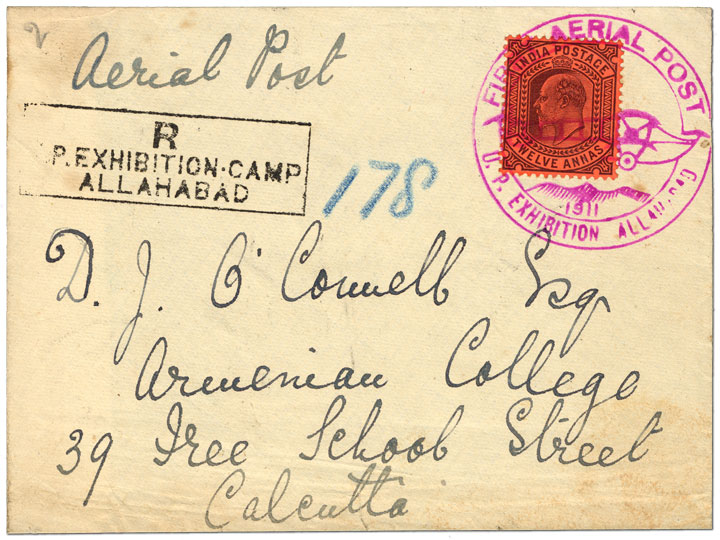 2
Aerial Post
R
.P. EXHIBITION·CAMP
ALLAHABAD
178
FIRST AERIAL POST
INDIA POSTAGE
TWELVE ANNAS
1911
U.P. EXHIBITION ALLAHABAD
D. J. O'Connell Esq
Armenian College
39 Free School Street
Calcutta